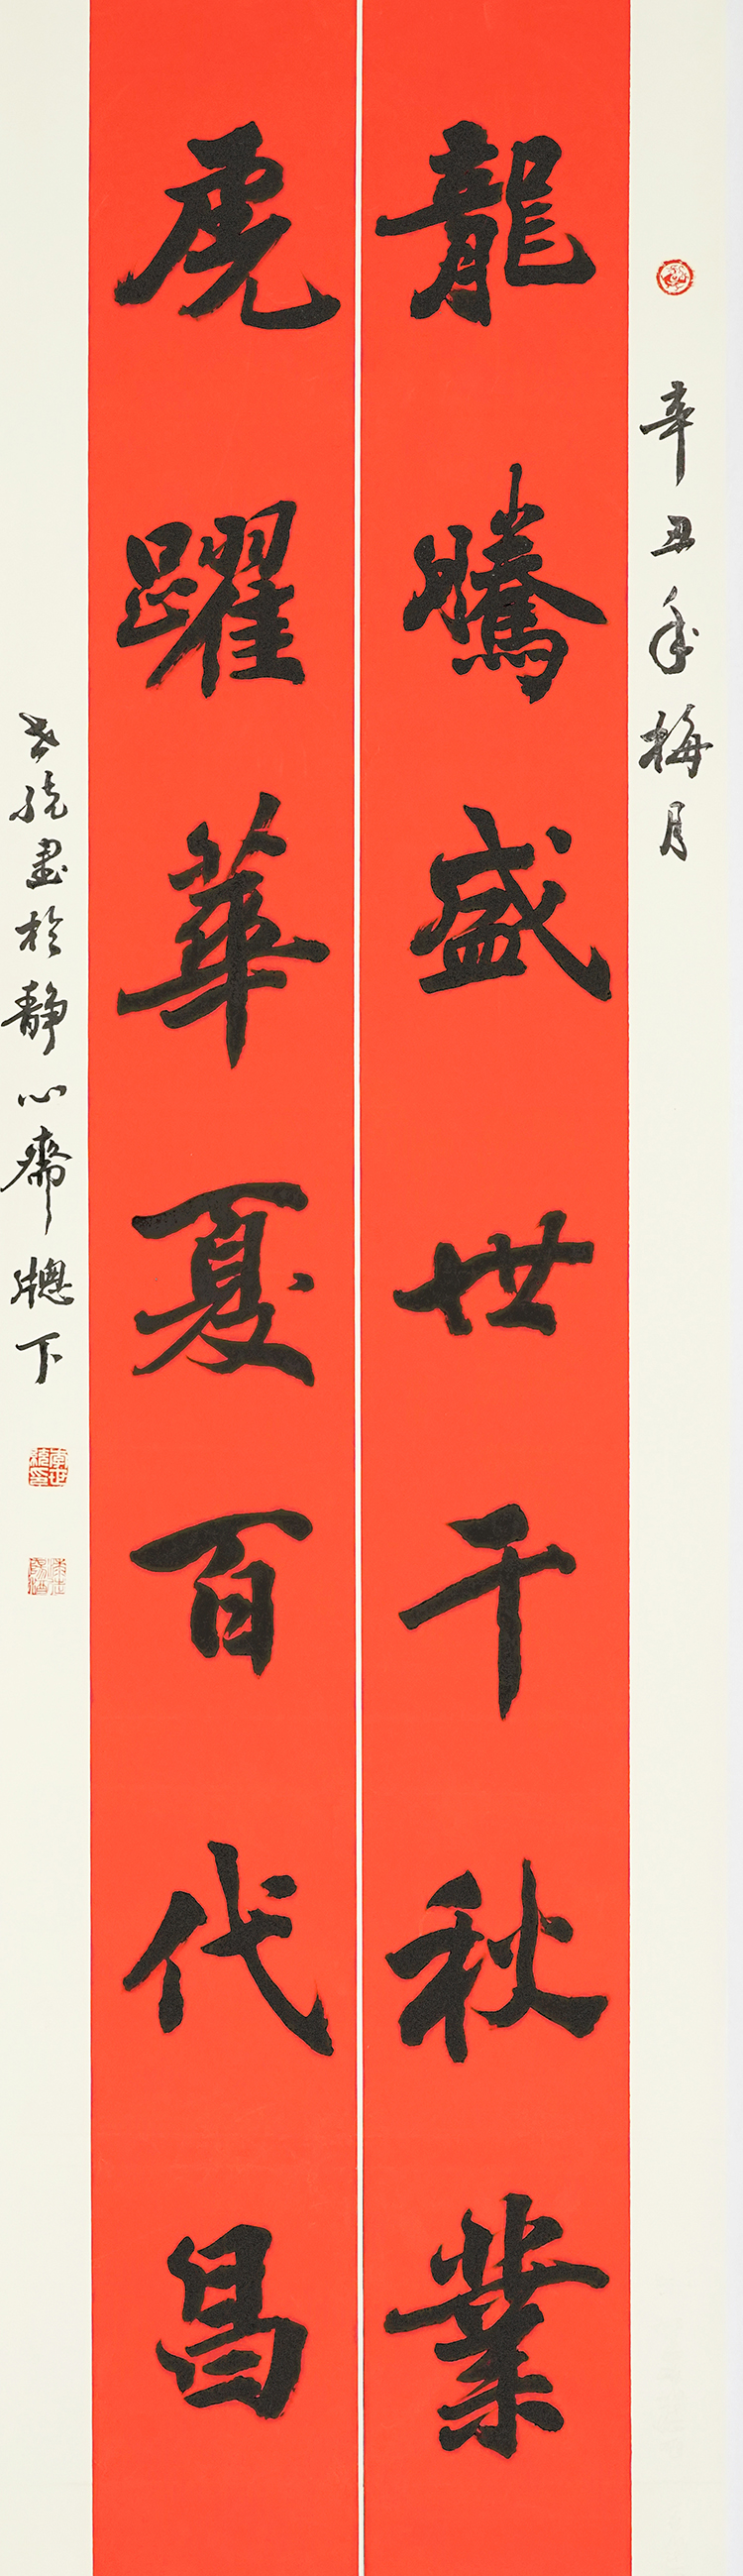 辛丑年梅月
龍騰盛世千秋業
虎躍華夏百代昌
書於靜心齋牕下